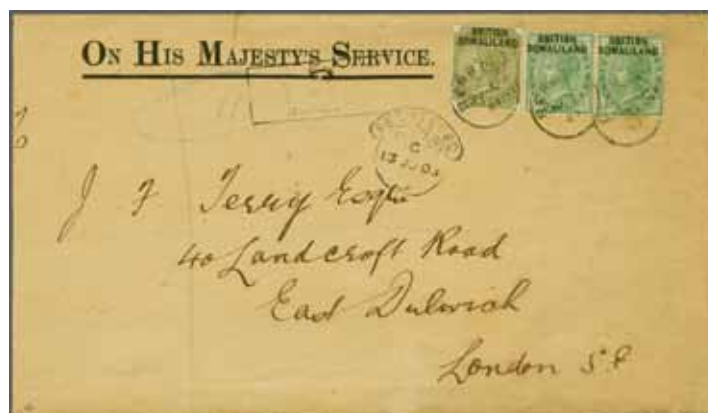 ON HIS MAJESTY'S SERVICE.
BRITISH
SOMALILAND
BRITISH
SOMALILAND
BRITISH
SOMALILAND
C
J F Terry Esqre
40 Landcroft Road
East Dulwich
London S E